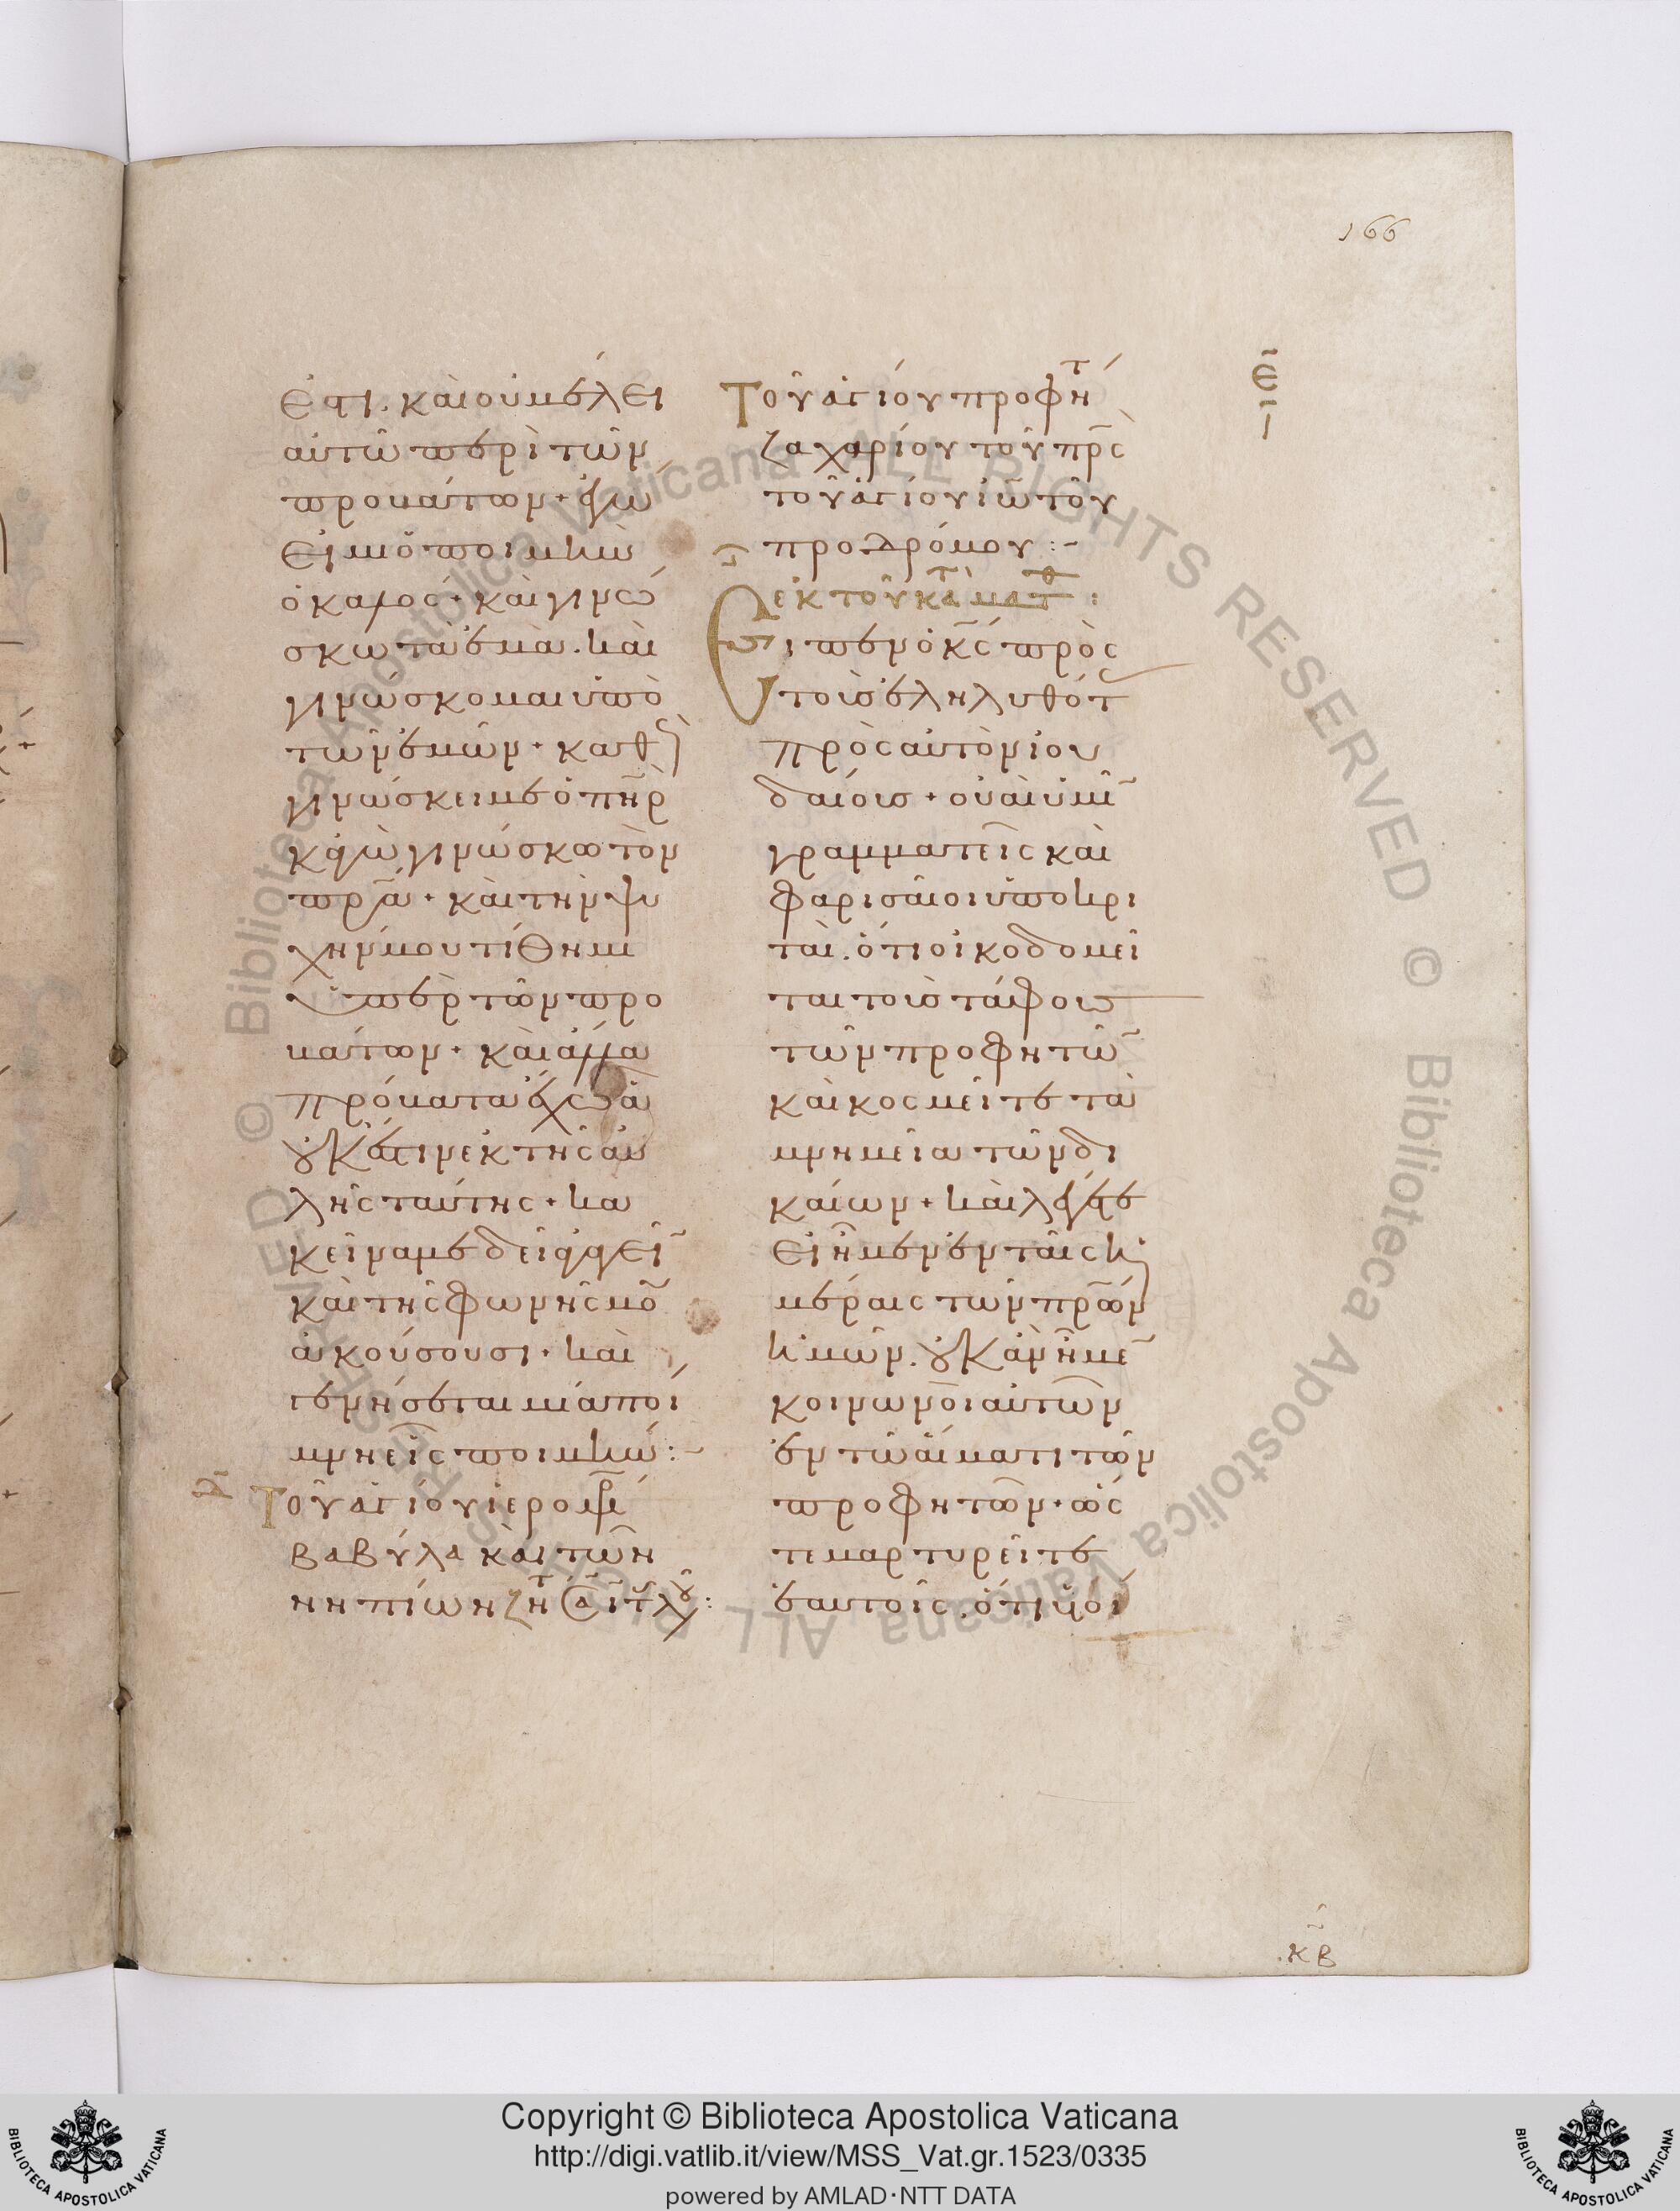 166
ἐστι. καὶ οὐ μέλει
αὐτῶ περὶ τῶν
προβάτων. ἐγώ
εἰμι ὁ ποιμὴν
ὁ καλός. καὶ γινώ
σκω τὰ ἐμὰ. καὶ
γινώσκομαι ὑπὸ
τῶν ἐμῶν. καθὼς
γινώσκει με ὁ πηρ
κἀγὼ γινώσκω τὸν
πρα. καὶ τὴν ψυ
χήν μου τίθημι
ὑπὲρ τῶν προ
βάτων. καὶ ἄλλα
πρόβατα ἔχω ἃ
οὐκ ἔστιν ἐκ τῆς αὐ
λῆς ταύτης. κα
κεῖνά με δεῖ ἀγαγεῖ
καὶ τῆς φωνῆς μου
ἀκούσουσι. καὶ
γενήσεται μία ποί
μνη εἷς ποιμήν:~
Τοῦ ἁγίου ἱερομ
Βαβύλα καὶ τῶν
νηπίων ζη
Τοῦ ἁγίου προφητ
Ζαχαρίου τοῦ πρς
τοῦ ἁγίου ἰω τοῦ
προδρόμου:~
ἐκ τοῦ κατ ματθ:
Εἶπεν ὁ κς πρὸς
τοὺς ἐληλυθότ
πρὸς αὐτὸν ἰου
δαίους. οὐαὶ ὑμῖ
γραμματεῖς καὶ
φαρισαῖοι ὑποκρι
ταὶ. ὅτι οἰκοδομεῖ
ται τοὺς τάφους
τῶν προφητῶ
καὶ κοσμεῖτε τὰ
μνημεῖα τῶν δι
καίων. καὶ λέγετε
εἰ ἦμεν ἐν ταῖς ἡ
μέραις τῶν πρων
ἡμῶν. οὐκ ἂν ἦμε
κοινωνοὶ αὐτῶν
ἐν τῶ αἵματι τῶν
προφητῶν. ὥς
τε μαρτυρεῖτε
ἑαυτοῖς. ὅτι υἱοί
κβ
Copyright © Biblioteca Apostolica Vaticana
http://digi.vatlib.it/view/MSS_Vat.gr.1523/0335
powered by AMLAD·NTT DATA
BIBLIOTECA APOSTOLICA VATICANA
BIBLIOTECA APOSTOLICA VATICANA
© Biblioteca Apostolica Vaticana ALL RIGHTS RESERVED © Biblioteca Apostolica Vaticana ALL RIGHTS RESERVED